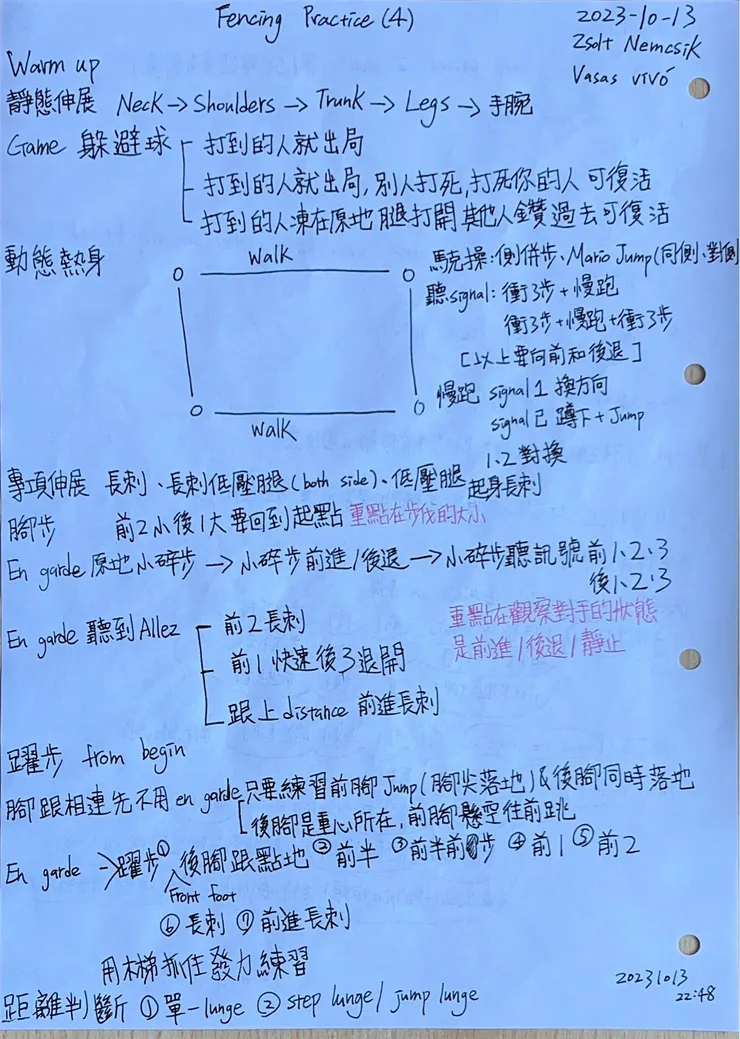 Fencing Practice (4)
2023-10-13
Zsolt Nemcsik
Vasas vivó
Warm up
靜態伸展 Neck → Shoulders → Trunk → Legs → 手腕
Game 躲避球 打到的人就出局
打到的人就出局,別人打死,打死你的人可復活
打到的人凍在原地 腿打開 其他人鑽過去可復活
動態熱身
walk
walk
馬克操:側併步、Mario Jump(同側、對側
聽signal: 衝3步+慢跑
衝3步+慢跑+衝3步
[以上要向前和後退]
慢跑 signal 1 換方向
signal 2 蹲下+Jump
1、2對換
專項伸展 長刺、長刺低壓腿(both side)、低壓腿起身長刺
腳步 前2小後1大要回到起點 重點在步伐的大小
En garde 原地小碎步 → 小碎步前進/後退 → 小碎步聽訊號前1、2、3
後1、2、3
En garde 聽到 Allez 前2長刺
前1快速後3退開
跟上distance 前進長刺
重點在觀察對手的狀態
是前進/後退/靜止
躍步 from begin
腳跟相連先不用en garde 只要練習前腳Jump(腳尖落地)&後腳同時落地
後腳是重心所在,前腳懸空往前跳
En garde → 躍步 ① 後腳跟點地 ② 前半 ③ 前半前步 ④ 前1 ⑤ 前2
Front foot
⑥ 長刺 ⑦ 前進長刺
用木梯抓住發力練習
距離判斷 ① 單一lunge ② step lunge/ jump lunge
20231013
22:48